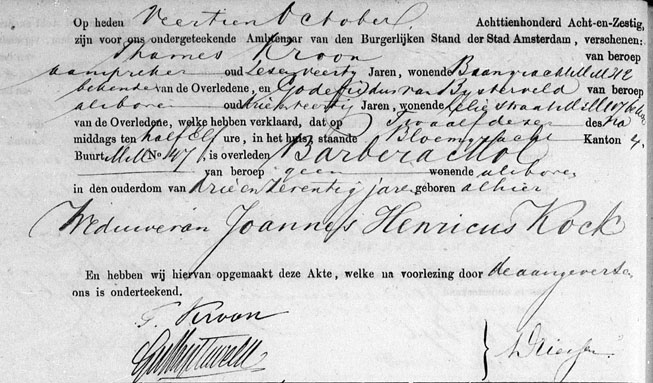 Op heden Veertien October Achttienhonderd Acht-en-Zestig,
zijn voor ons ondergeteekende Ambtenaar van den Burgerlijken Stand der Stad Amsterdam, verschenen:
Thomas Kroon van beroep
aanspreker oud Zesenveertig Jaren, wonende Baangracht
bekende van de Overledene, en van Bysterveld van beroep
als boven oud Jaren, wonende Leliestraat
van de Overledene, welke hebben verklaard, dat op Twaalf dezer des Na
middags ten half Elf ure, in het huis, staande Bloemgracht Kanton 4.
Buurt No. 147 is overleden Barbera Mol
van beroep geen wonende als boven
in den ouderdom van Drie en Zeventig jaren geboren alhier
Weduwe van Joannes Henricus Kock
En hebben wij hiervan opgemaakt deze Akte, welke na voorlezing door de aangevers en
ons is onderteekend.
T. Kroon